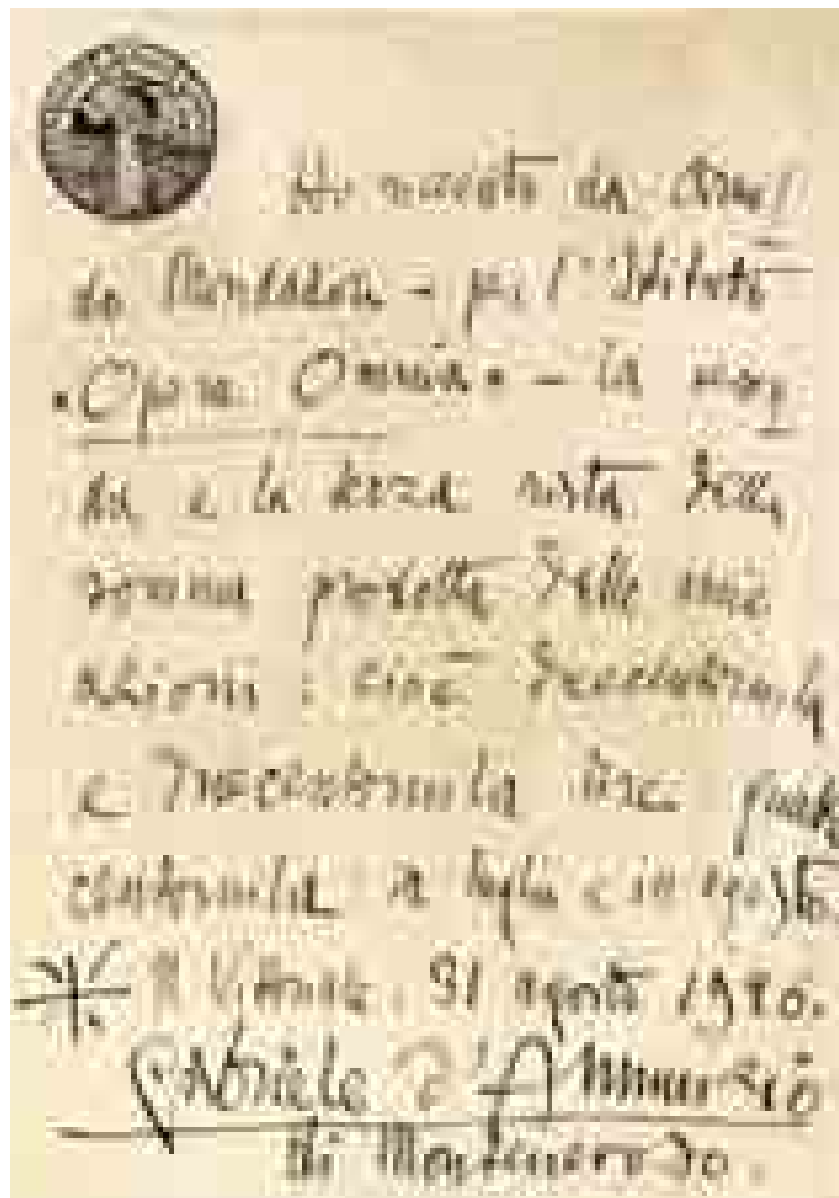 Ho ricevuto da Arnol
do Mondadori - per l'Istituto
"Opera Omnia" - la
da e la terza rata della
somma prodotta dalle mie
edizioni: cioè
e Trecentomila lire
centomila a luglio e in agosto.
Il Vittoriale. 31 agosto 19
Gabriele d'Annunzio
di Montenevoso.